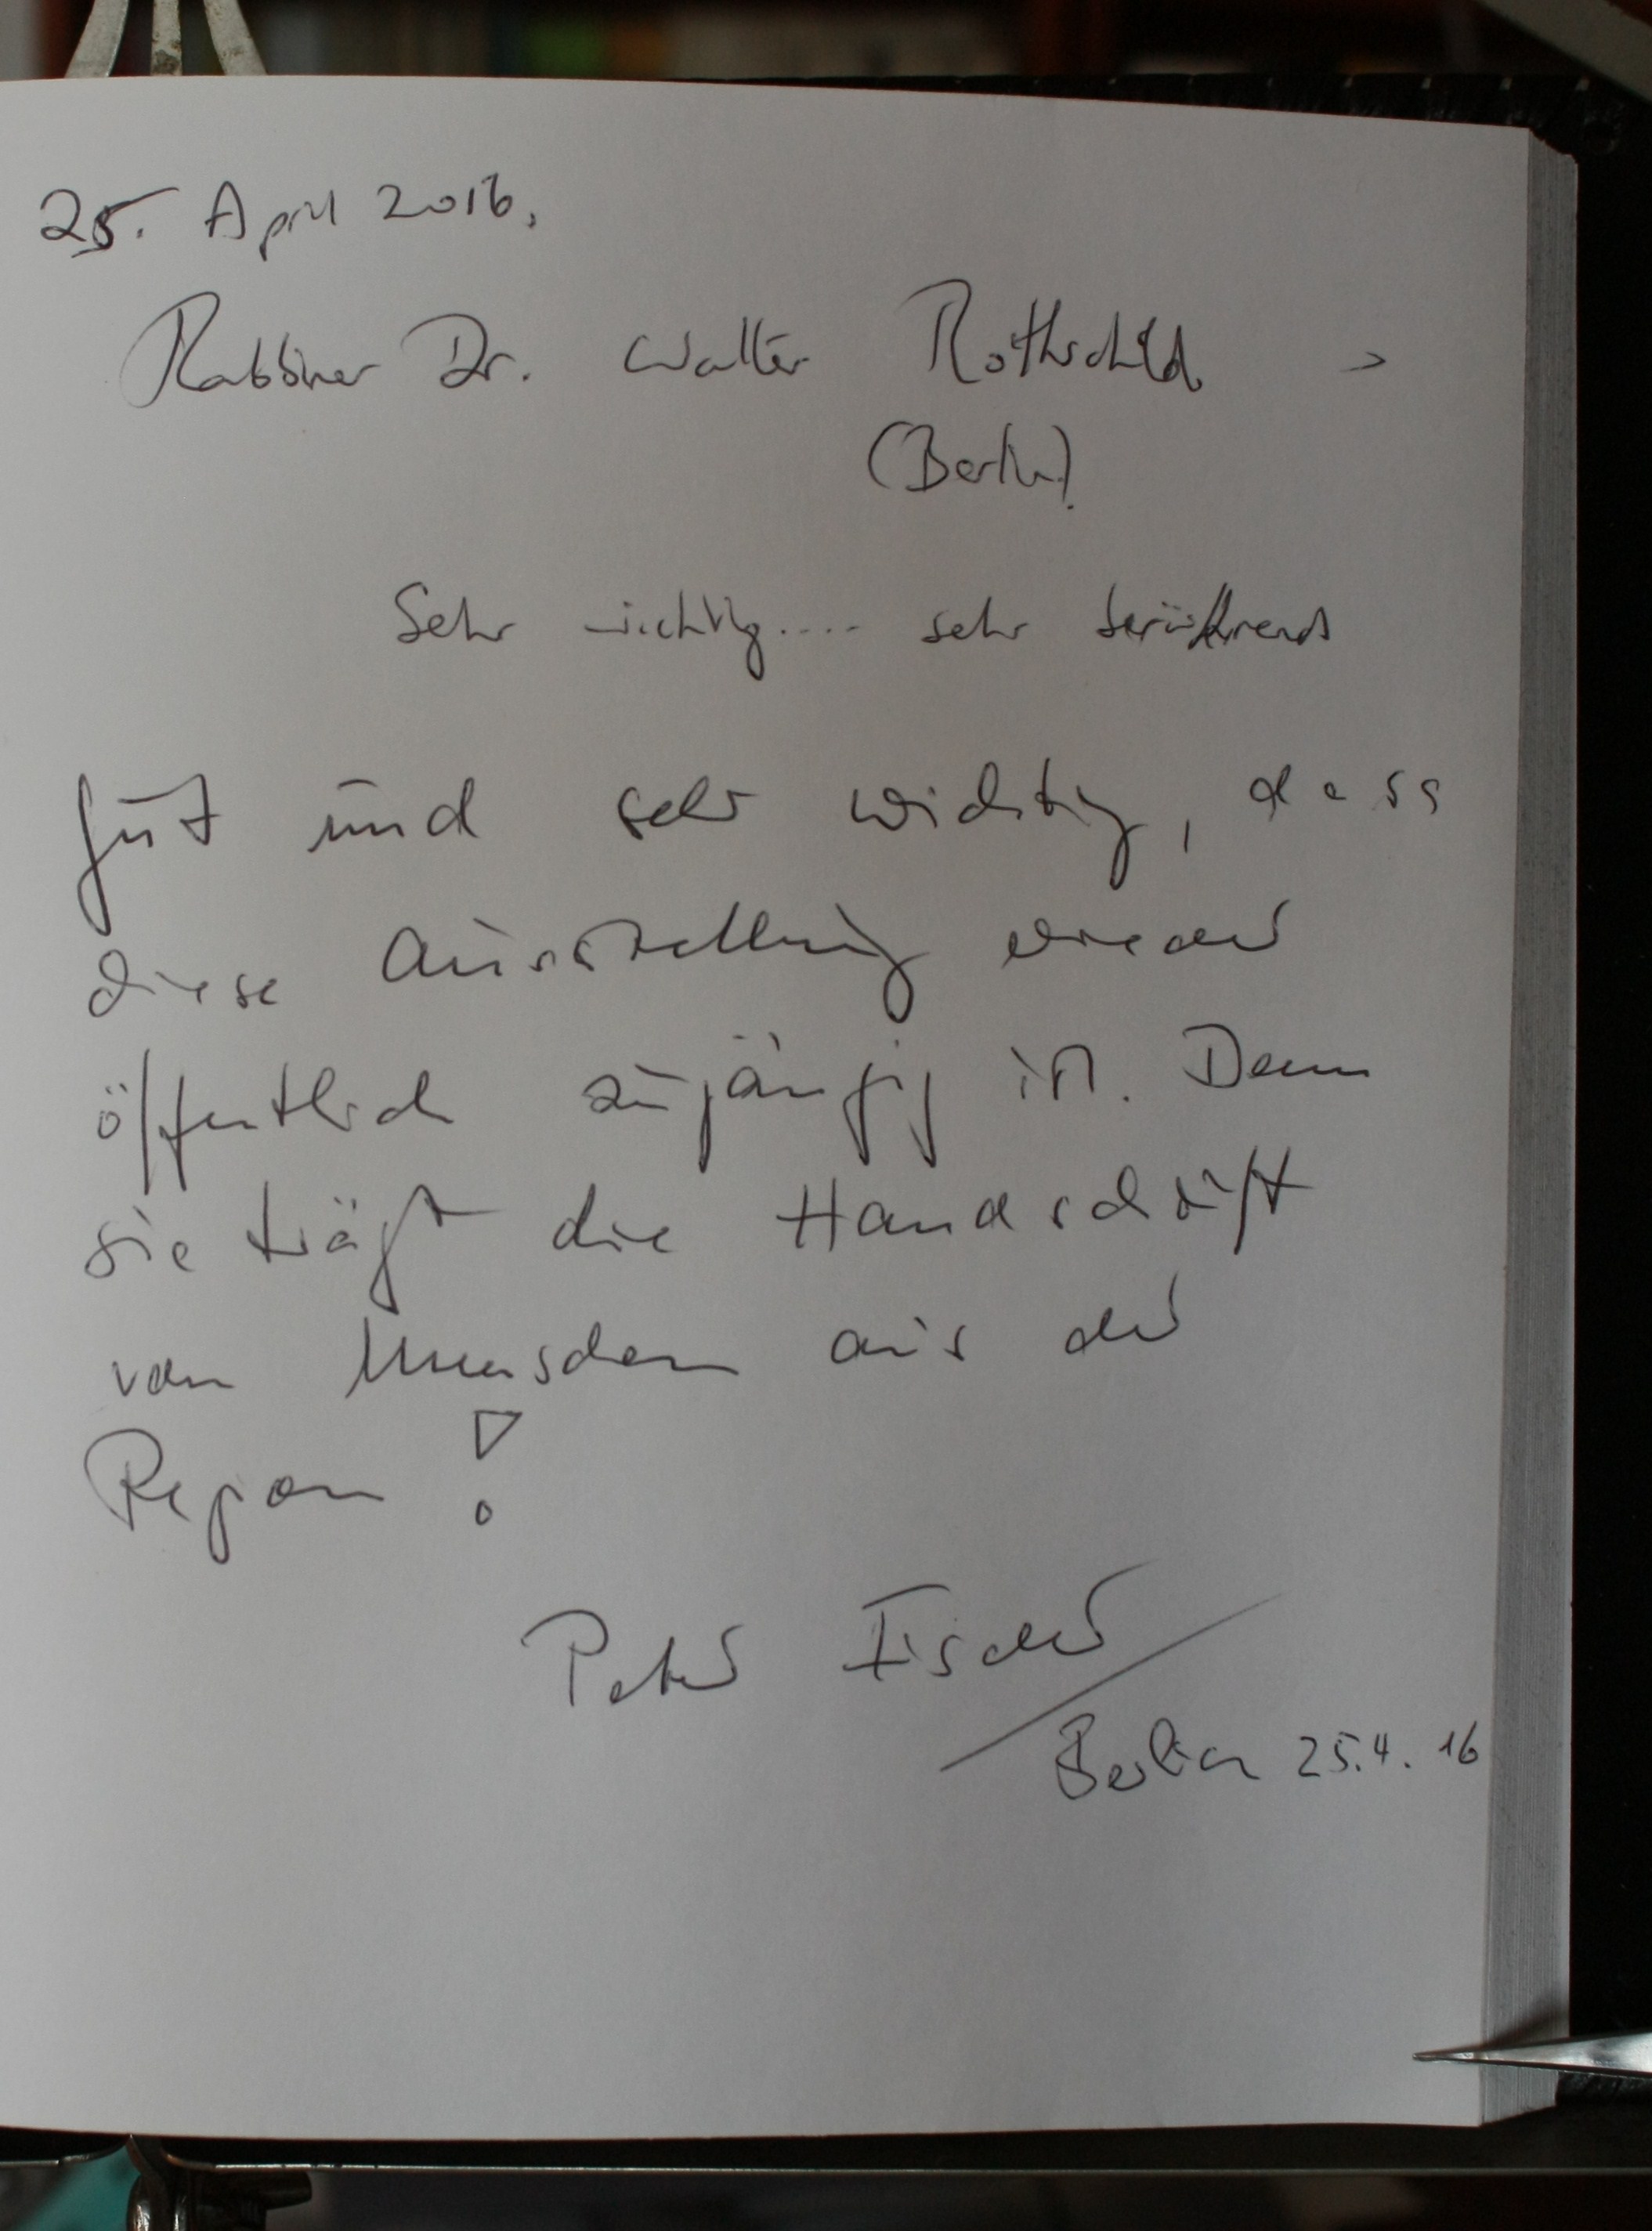 25. April 2016.
Rabbiner Dr. Walter Rothschild
(Berlin)
Sehr wichtig.... sehr berührend
gut und sehr wichtig, dass
diese Ausstellung wieder
öffentlich zugängig ist. Denn
sie trägt die Handschrift
von Menschen aus der
Region!
Peter Fischer
Berlin 25.4.16